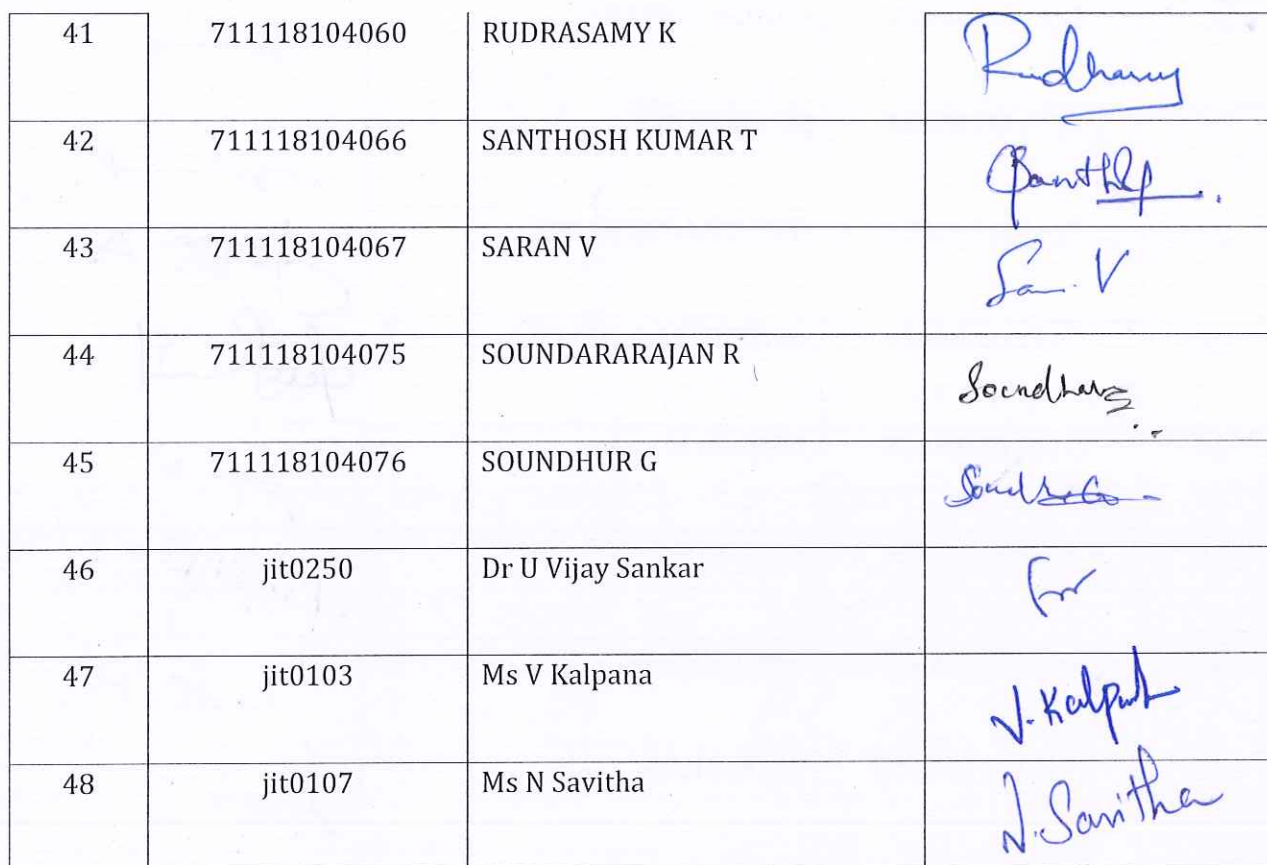 41 711118104060 RUDRASAMY K
42 711118104066 SANTHOSH KUMAR T
43 711118104067 SARAN V
San. V
44 711118104075 SOUNDARARAJAN R
45 711118104076 SOUNDHUR G
46 jit0250 Dr U Vijay Sankar
47 jit0103 Ms V Kalpana
48 jit0107 Ms N Savitha
N. Savitha